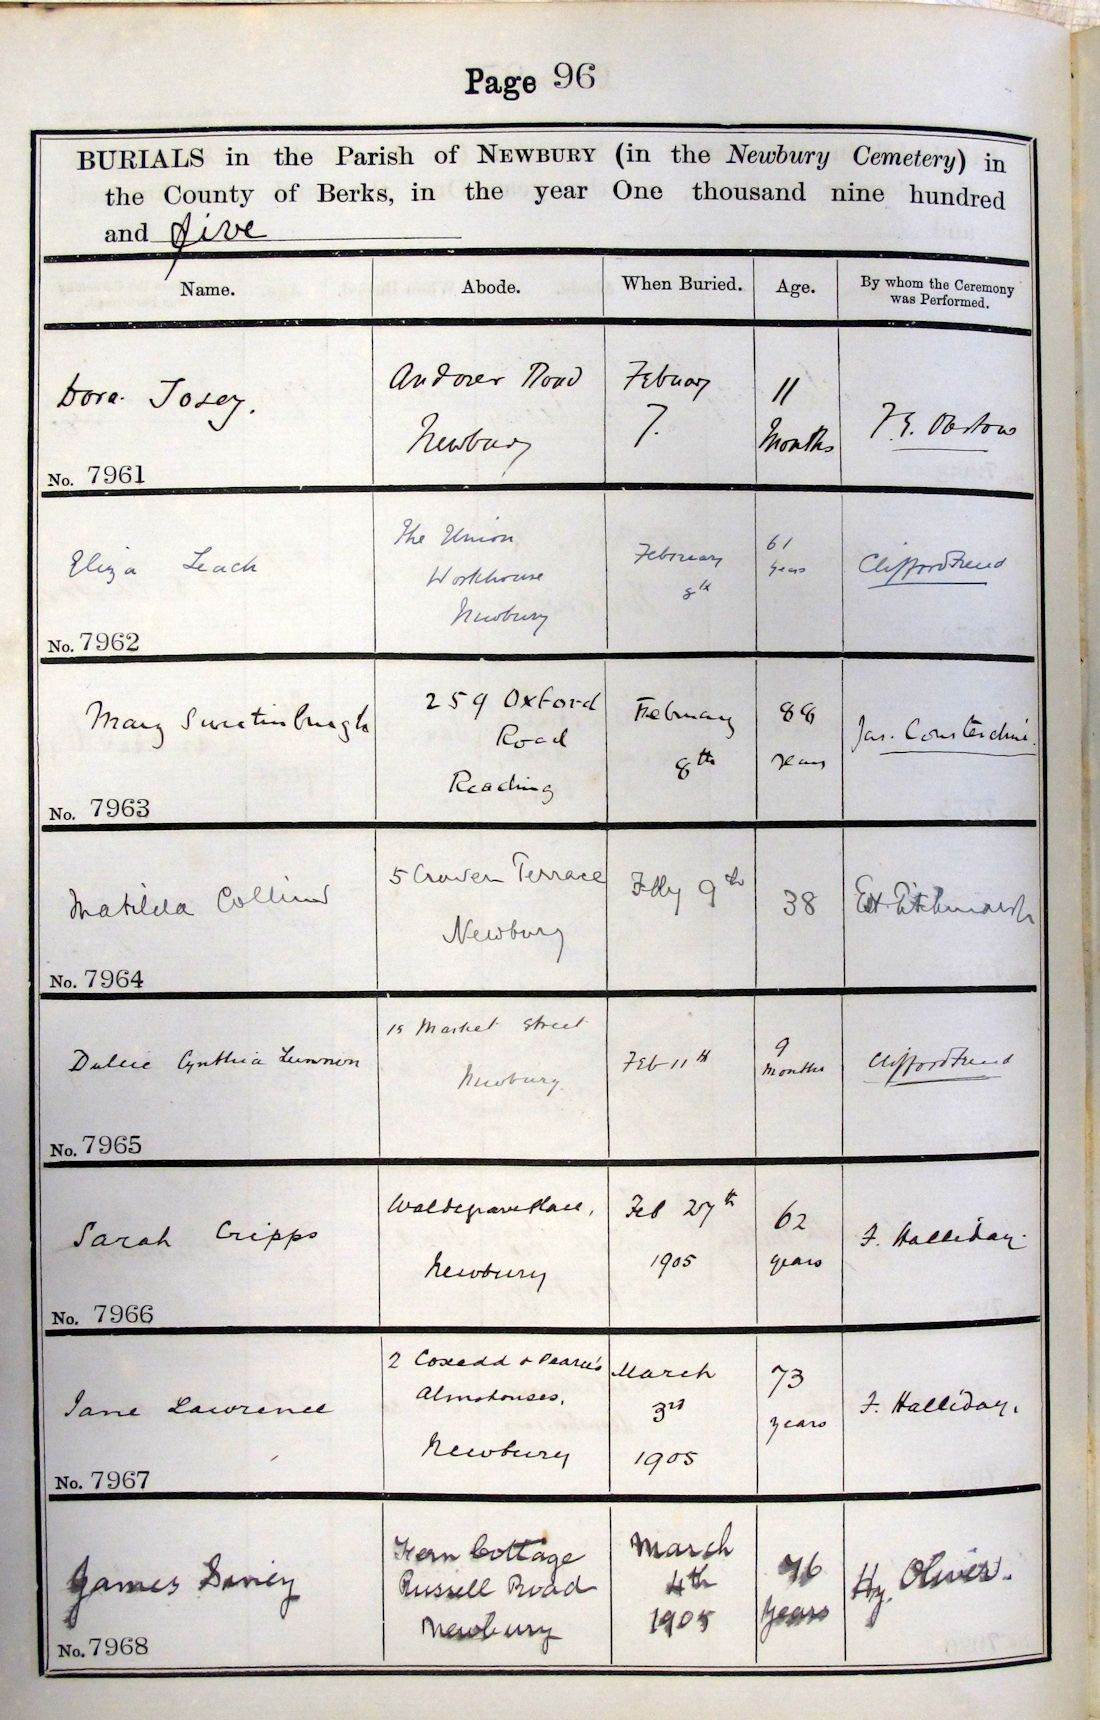 Page 96
BURIALS in the Parish of NEWBURY (in the Newbury Cemetery) in
the County of Berks, in the year One thousand nine hundred
and five
Name. Abode. When Buried. Age. By whom the Ceremony
was Performed.
Dora Josey.
Andover Road
Newbury
Febuary
7.
11
Months
No. 7961
Eliza Leach
The Union
Workhouse
Newbury
February
8th
61
years
Clifford Freud
No. 7962
Mary Swatinburgh
259 Oxford
Road
Reading
February
8th
88
years
Jas. Consterdine.
No. 7963
Matilda Collins
5 Craven Terrace
Newbury
Feby 9th
38
No. 7964
Dulcie Cynthia Lunnon
15 Market Street
Newbury.
Feb 11th
9
Months
Clifford Freud
No. 7965
Sarah Cripps
Waldegrave Place,
Newbury
Feb 27th
1905
62
years
F. Halliday.
No. 7966
Jane Lawrence
2 Coxedd & Pearce's
Almshouses,
Newbury
March
3rd
1905
73
years
F. Halliday.
No. 7967
James
Fern Cottage
Russell Road
Newbury
March
4th
1905
76
years
Hy. Oliver.
No. 7968